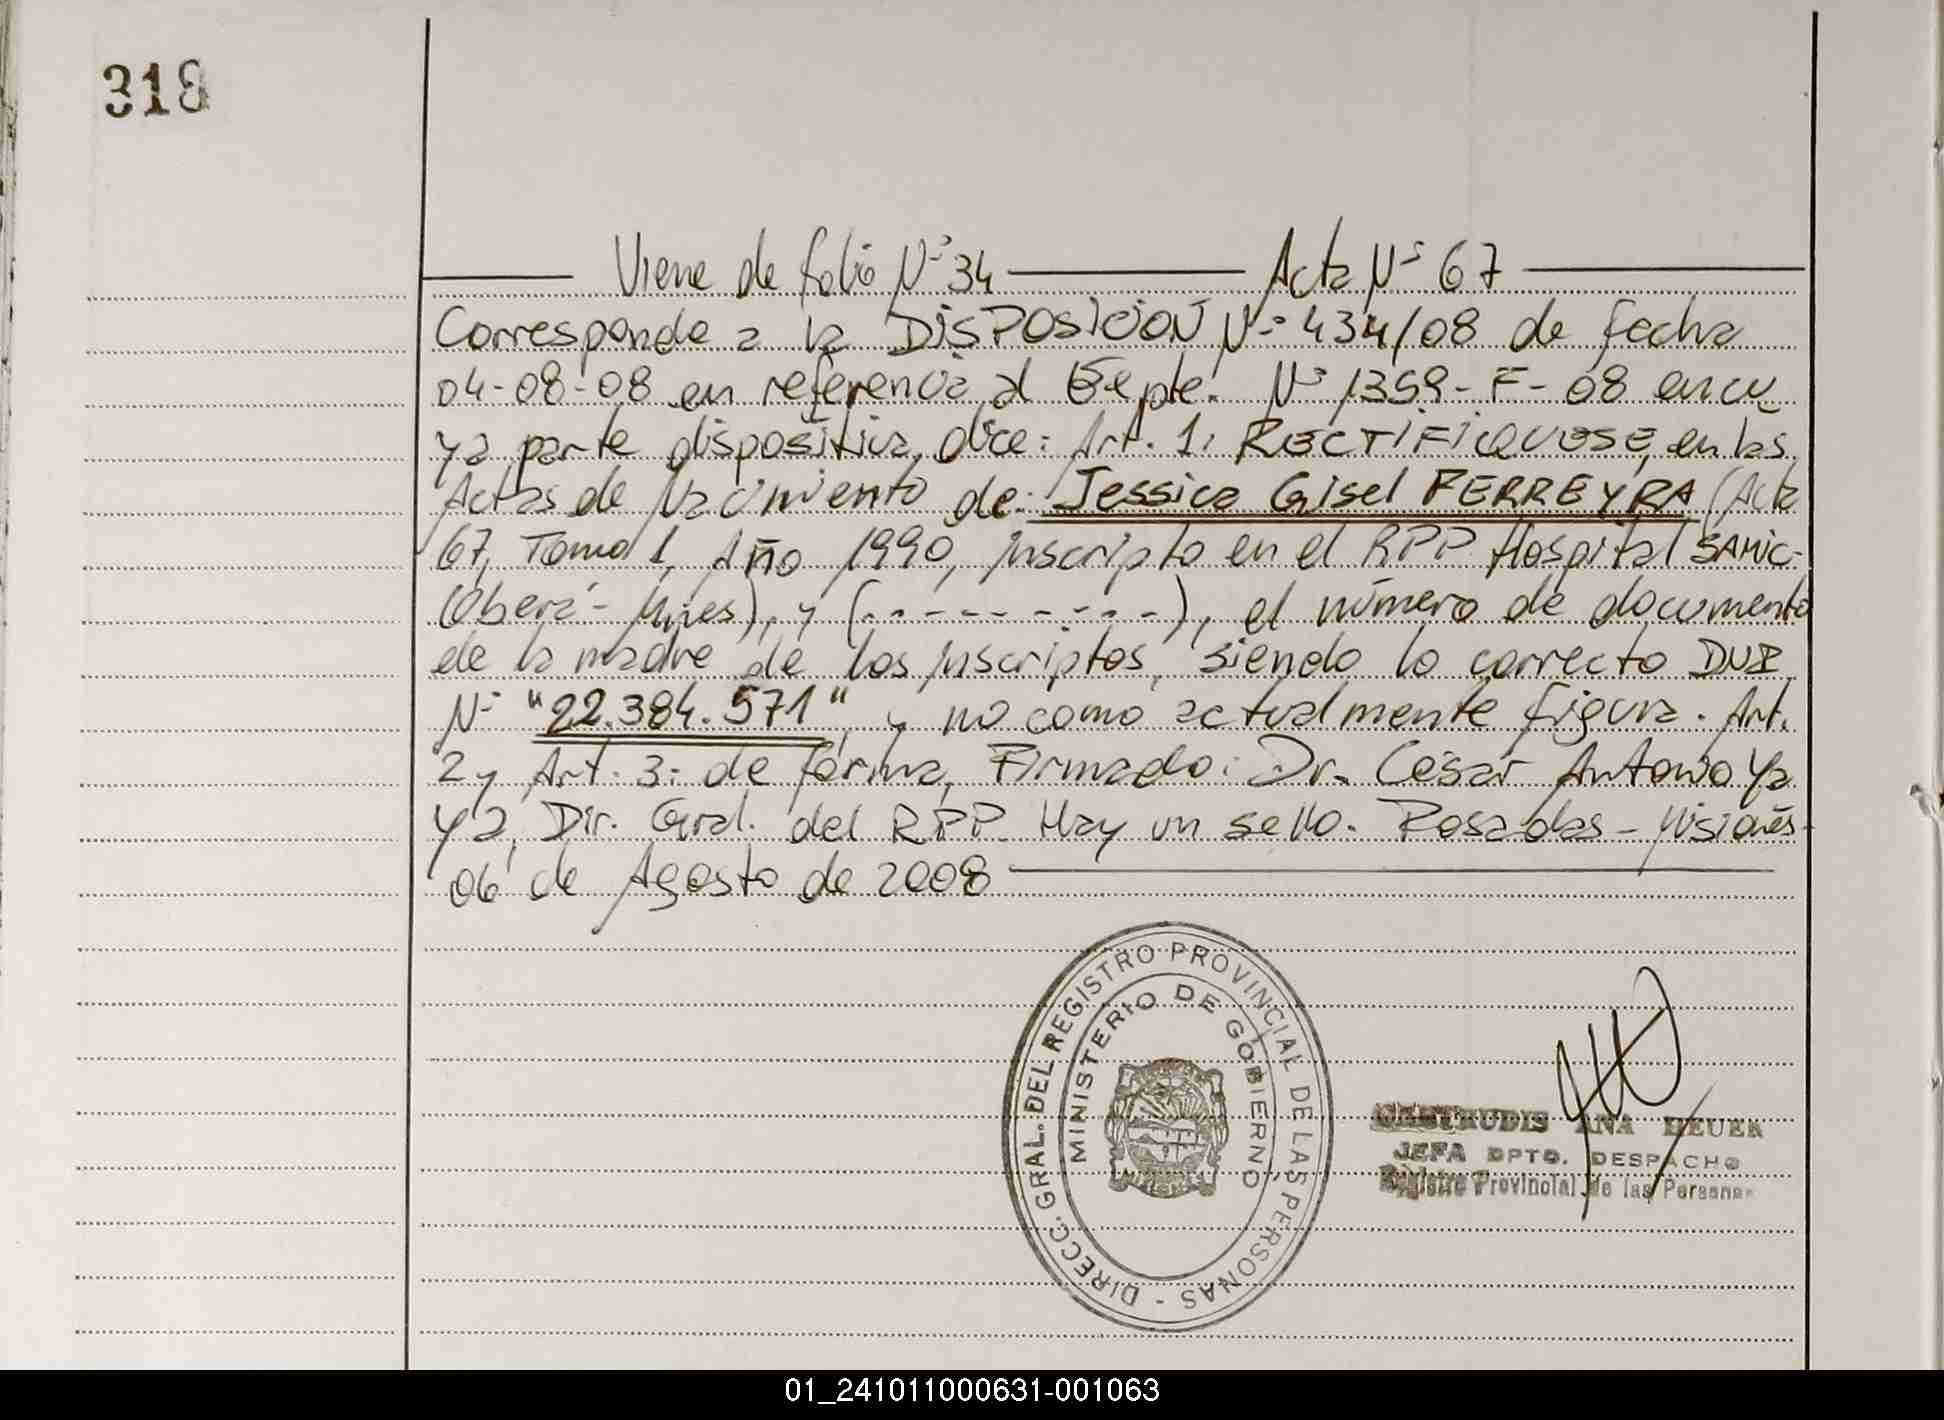 318
Viene de folio Nº 34 Acta Nº 67
Corresponde a la DISPOSICIÓN Nº 434/08 de fecha
04-08-08 en referencia al Expte. Nº 1359-F-08 en cu
ya parte dispositiva dice: Art. 1: RECTIFIQUESE, en las
Actas de Nacimiento de: Jessica Gisel FERREYRA (Acta
67, Tomo 1, Año 1990, inscripto en el RPP Hospital SAMIC-
Oberá - Mnes), y (- - - - - - - - -), el número de documento
de la madre de los inscriptos, siendo lo correcto DNI
Nº "22.384.571", y no como actualmente figura. Art.
2 y Art. 3: de forma, Firmado: Dr. César Antonio Ya
ya, Dir. Gral. del RPP. Hay un sello. Posadas - Misiones-
06 de Agosto de 2008
DIRECC. GRAL. DEL REGISTRO PROVINCIAL DE LAS PERSONAS -
MINISTERIO DE GOBIERNO
GERTRUDIS ANA HEUER
JEFA DPTO. DESPACHO
Registro Provincial de las Personas
01_241011000631-001063